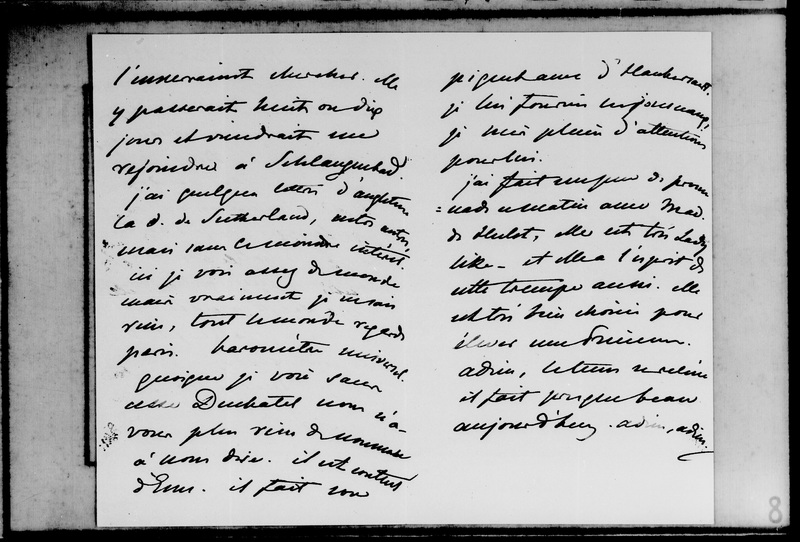 l'y enverraient chercher. Elle
y passerait huit ou dix
jours et viendrait me
rejoindre à Schlangenbad.
j'ai quelques lettres d'angleterre
la d. de Sutherland, autres,
mais sans le moindre intérêt.
ici je vois assez de monde
mais vraiment je ne sais
rien, tout le monde regarde
paris. baromètre universel.
quoique je voie sans
cesse Duchatel nous n'a-
vons plus rien de nouveau
à nous dire. il est content
d'Ems. il fait son
piquet avec d'Haubersart.
je lui fournis
je suis plein d'attentions
pour lui.
j'ai fait un peu de prome
=nade ce matin avec Mad.
de Hulot, elle est très Lady
like - et elle a l'esprit de
cette trempe aussi. elle
est très bien choisie pour
élever une Princesse.
adieu, le tems
il fait presque beau
aujourd'huy. adieu, adieu.
8